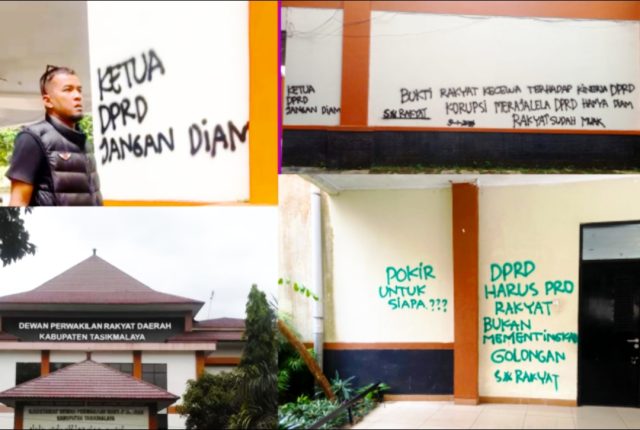 KETUA
DPRD
JANGAN DIAM
KETUA
DPRD
JANGAN DIAM
BUKTI RAKYAT KECEWA TERHADAP KINERJA DPRD
KORUPSI MERAJALELA DPRD HANYA DIAM
RAKYAT SUDAH MUAK
SJK RAKYAT
DEWAN PERWAKILAN RAKYAT DAERAH
KABUPATEN TASIKMALAYA
KABUPATEN TASIKMALAYA
POKIR
UNTUK
SIAPA???
DPRD
HARUS PRO
RAKYAT
BUKAN
MEMENTINGKAN
GOLONGAN
SJK RAKYAT